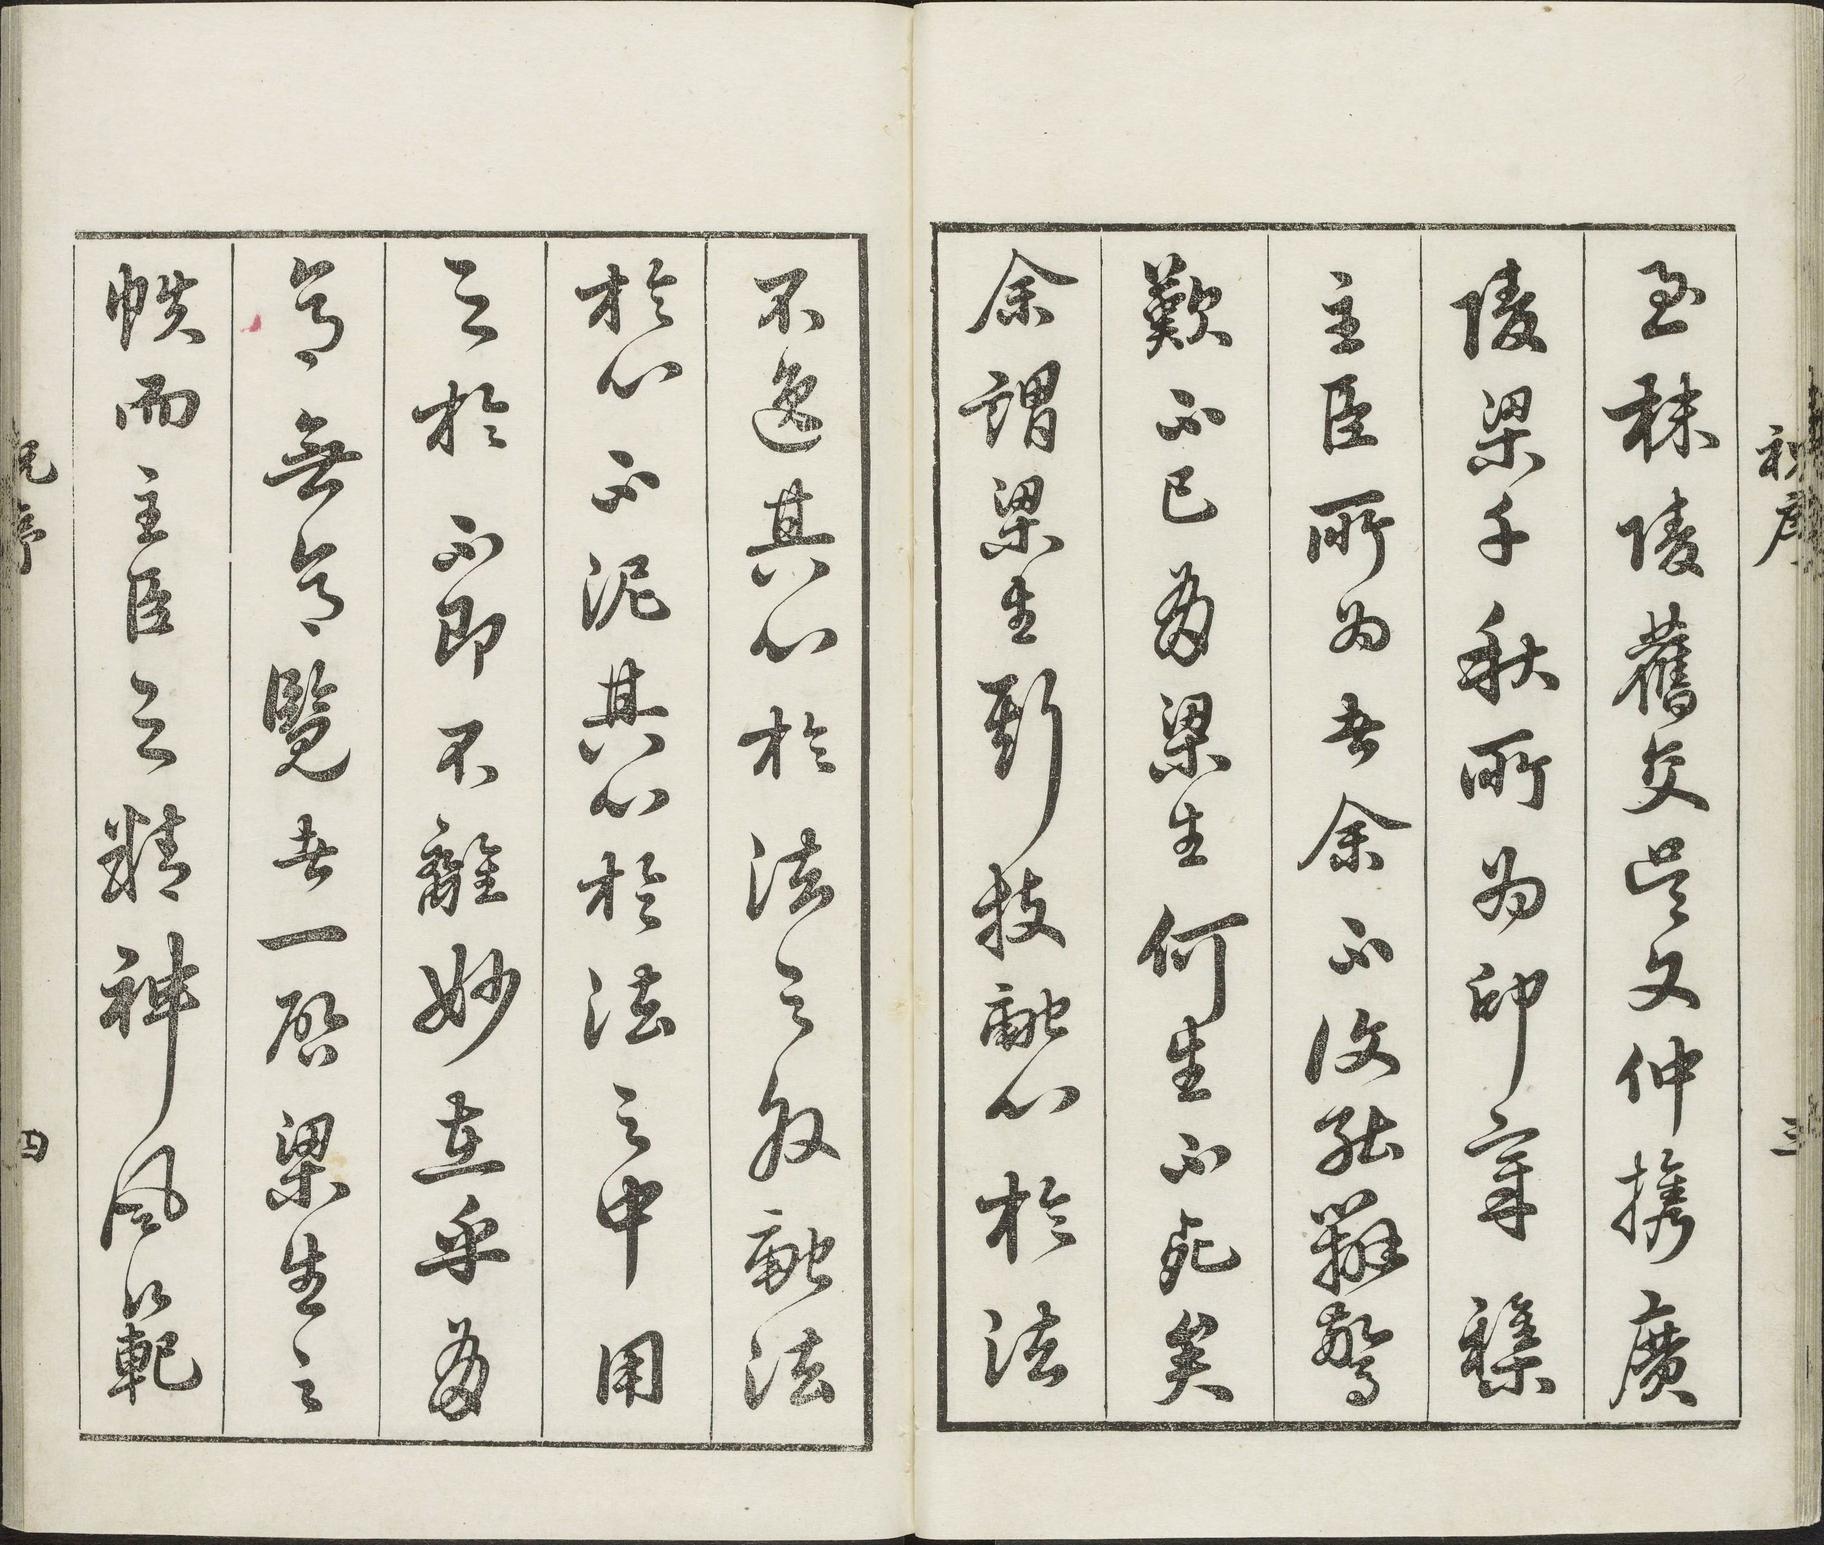 祝序
三
至秣陵舊交吳文仲攜廣
陵梁千秋所為印章襍
主臣所為者余不復能辨驚
歎不已梁生何生不死矣
余謂梁生斯技融心於法
不逸其心於法之外融法
於心不泥其心於法之中用
之於不即不離妙在乎
無覽者一啓梁生之
帙而主臣之精神風範
祝序
四